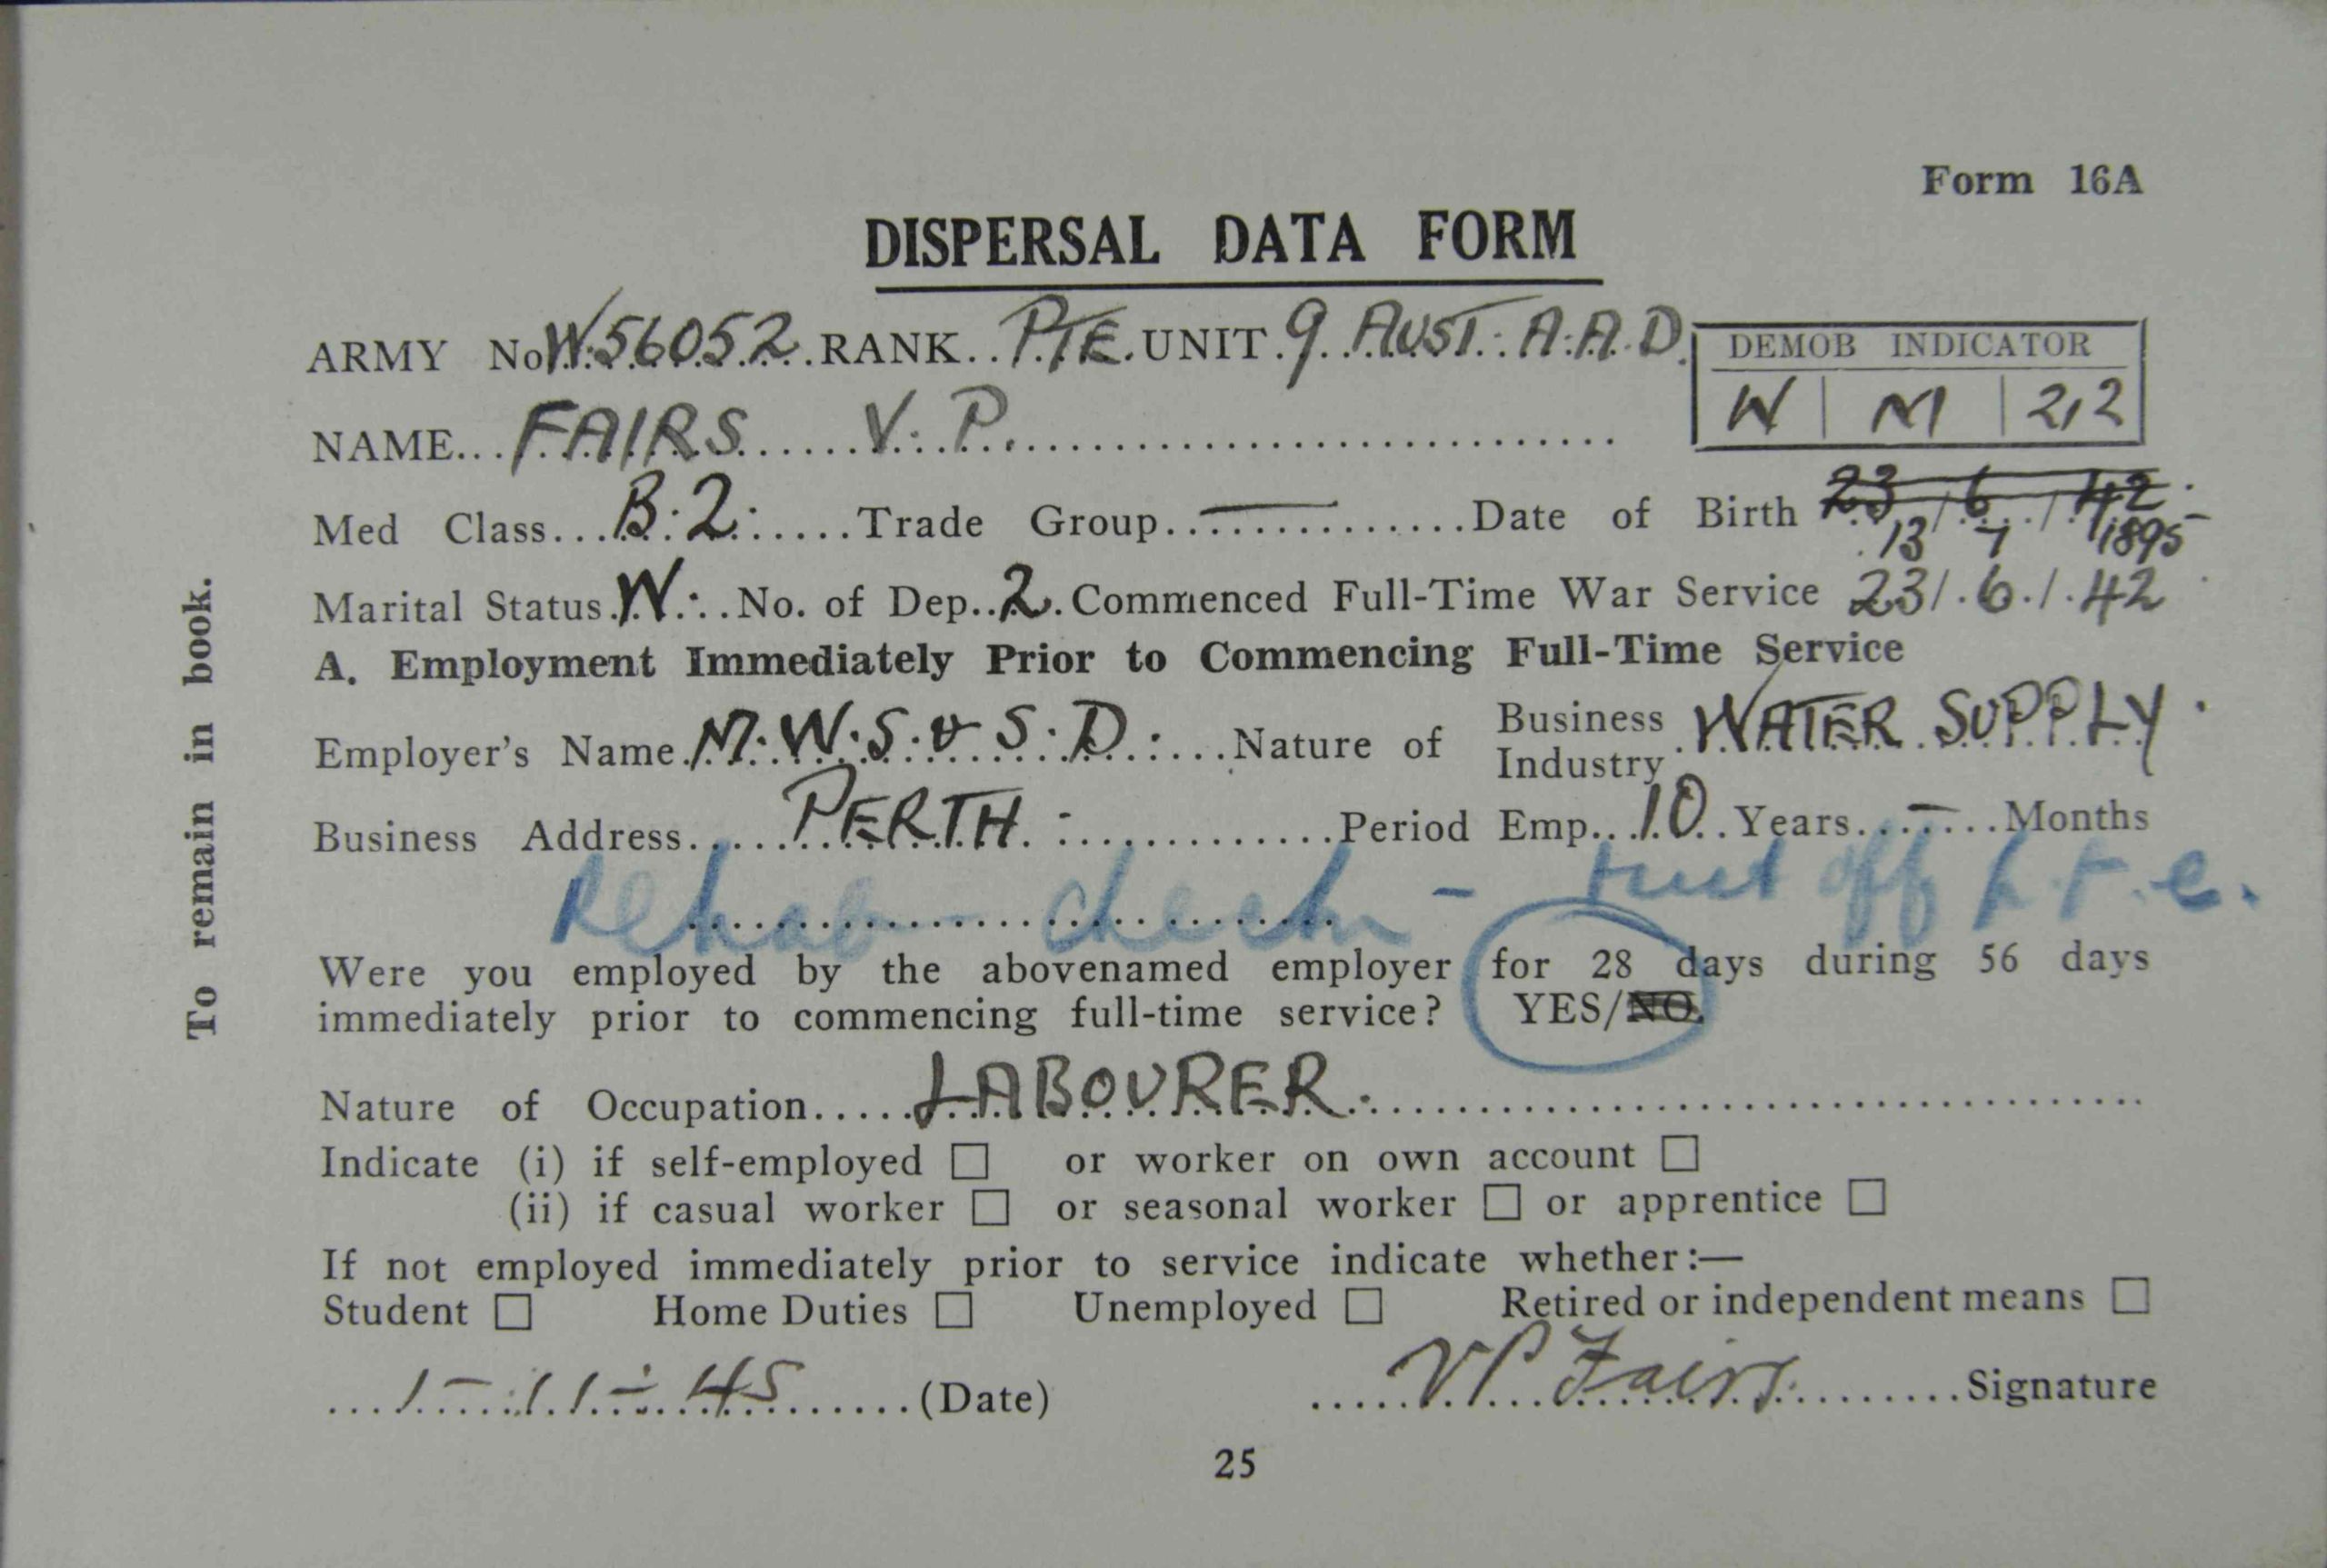 Form 16A
DISPERSAL DATA FORM
ARMY No W.56052 RANK PTE UNIT 9 AUST. A.A.D.
DEMOB INDICATOR
W | M | 212
NAME FAIRS V. P.
Med Class B.2. Trade Group — Date of Birth 23/6/42
13 7 1895
Marital Status W. No. of Dep. 2 Commenced Full-Time War Service 23/6/42
A. Employment Immediately Prior to Commencing Full-Time Service
Employer's Name M.W.S. & S.D. Nature of Business Industry WATER SUPPLY.
Business Address PERTH. Period Emp. 10 Years — Months
Rehab check - off
Were you employed by the abovenamed employer for 28 days during 56 days
immediately prior to commencing full-time service? YES/NO.
Nature of Occupation LABOURER.
Indicate (i) if self-employed ☐ or worker on own account ☐
(ii) if casual worker ☐ or seasonal worker ☐ or apprentice ☐
If not employed immediately prior to service indicate whether:—
Student ☐ Home Duties ☐ Unemployed ☐ Retired or independent means ☐
1-11-45 (Date) VP Fairs Signature
25
To remain in book.